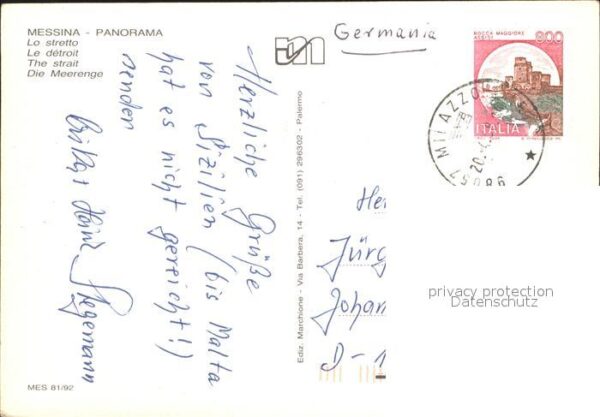 MESSINA - PANORAMA
Lo stretto
Le détroit
The strait
Die Meerenge
Herzliche Grüße
von Sizilien (bis Malta
hat es nicht gereicht!)
senden
Heinz Stegemann
Ediz. Marchione - Via Barbera, 14 - Tel. (091) 296302 - Palermo
MES 81/92
Germania
ROCCA MAGGIORE
ASSISI
800
ITALIA
MILAZZO
20.
98057
Jürg
Johan
D-1
privacy protection
Datenschutz